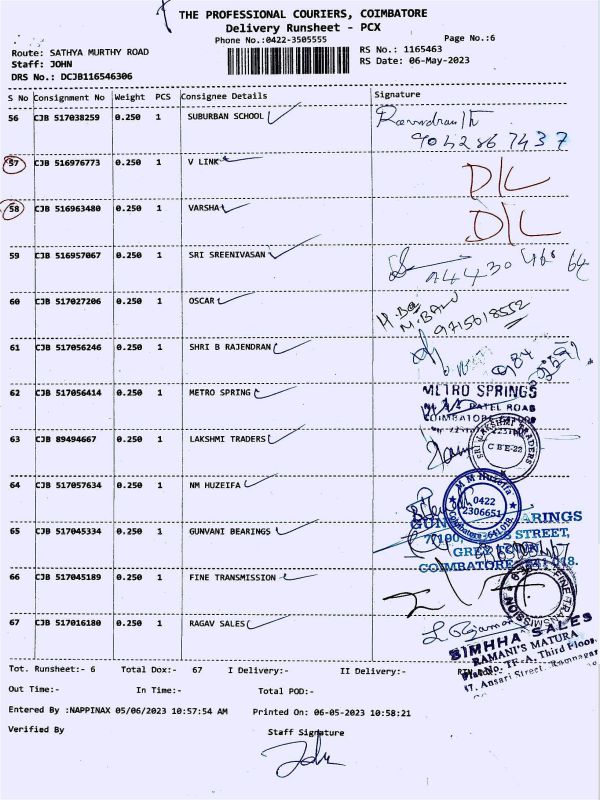 THE PROFESSIONAL COURIERS, COIMBATORE
Delivery Runsheet - PCX
Phone No.:0422-3505555
Page No.:6
Route: SATHYA MURTHY ROAD
RS No.: 1165463
Staff: JOHN
RS Date: 06-May-2023
DRS No.: DCJB116546306
S No Consignment No Weight PCS Consignee Details Signature
56 CJB 517038259 0.250 1 SUBURBAN SCHOOL
9042867437
57 CJB 516976773 0.250 1 V LINK D/L
58 CJB 516963480 0.250 1 VARSHA D/L
59 CJB 516957067 0.250 1 SRI SREENIVASAN
60 CJB 517027206 0.250 1 OSCAR
9715618552
61 CJB 517056246 0.250 1 SHRI B RAJENDRAN
62 CJB 517056414 0.250 1 METRO SPRING
METRO SPRINGS
PATEL ROAD
63 CJB 89494667 0.250 1 LAKSHMI TRADERS
SRI LAKSHMI TRADERS
CBE-22
64 CJB 517057634 0.250 1 NM HUZEIFA
M M Huzeifa
0422
2306651
Coimbatore - 641 018.
65 CJB 517045334 0.250 1 GUNVANI BEARINGS
GUN ARINGS
STREET,
COIMBATORE 641 018.
66 CJB 517045189 0.250 1 FINE TRANSMISSION
FINE TRANSMISSION
67 CJB 517016180 0.250 1 RAGAV SALES
SIMHHA SALES
RAMANI'S MATURA
No. TF-A, Third Floor,
Ansari Street, Ramnagar
Tot. Runsheet:- 6 Total Dox:- 67 I Delivery:- II Delivery:-
Out Time:- In Time:- Total POD:-
Entered By :NAPPINAX 05/06/2023 10:57:54 AM Printed On: 06-05-2023 10:58:21
Verified By Staff Signature
John